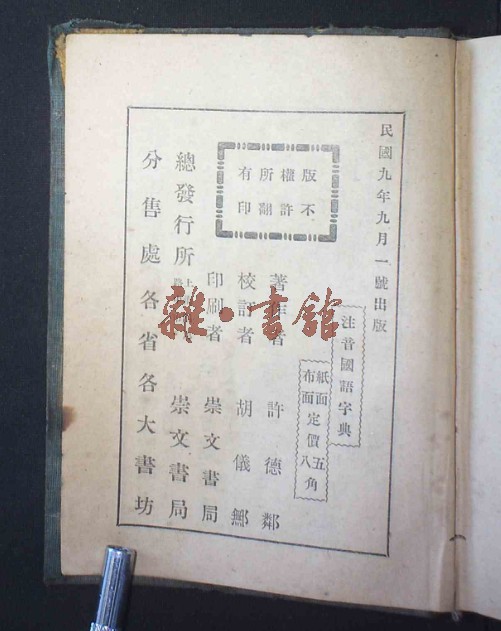 民國九年九月一號出版
注音國語字典
紙面
布面
定價
五
八
角
版權所有
不許翻印
著作者 許德鄰
校訂者 胡儀
印刷者 崇文書局
總發行所 上 崇文書局
分售處各省各大書坊
雜·書館